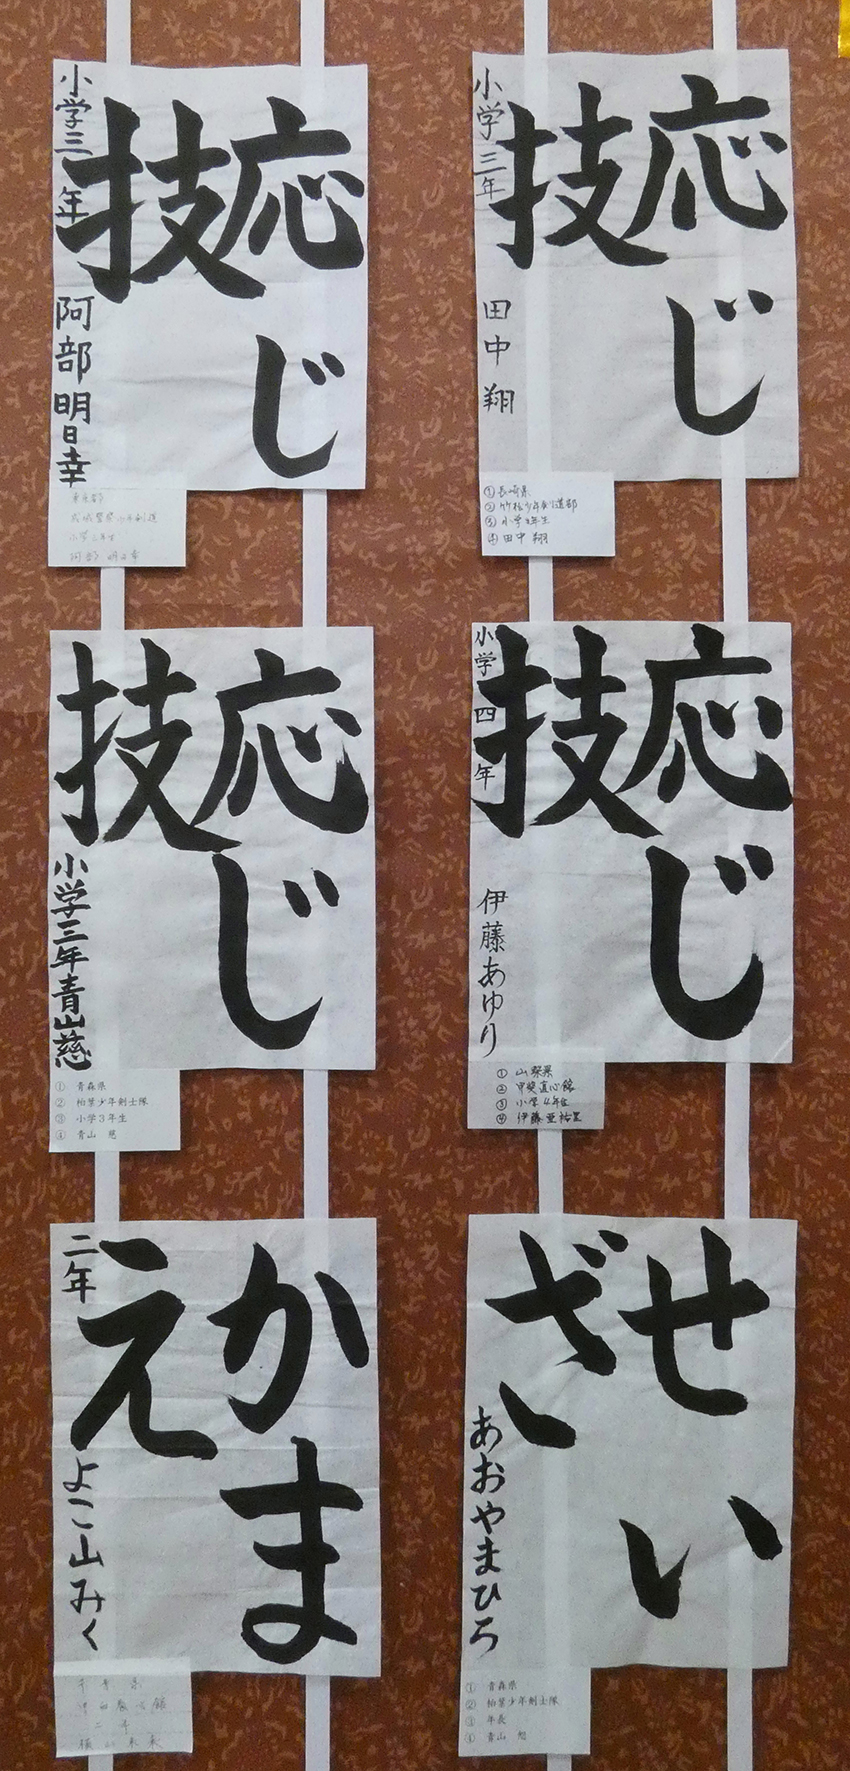 応じ
技
小学三年 田中翔
①長崎県
②竹松少年剣道部
③小学3年生
④田中 翔
応じ
技
小学三年 阿部明日幸
東京都
小学三年生
阿部 明日幸
応じ
技
小学四年 伊藤あゆり
①山梨県
②甲斐直心館
③小学4年生
④伊藤 亜祐里
応じ
技
小学三年青山慈
① 青森県
② 柏葉少年剣士隊
③ 小学3年生
④ 青山 慈
せい
ざ
あおやまひろ
① 青森県
② 柏葉少年剣士隊
③ 年長
④ 青山
かま
え
二年 よこ山みく
千葉県
二年
横山未来